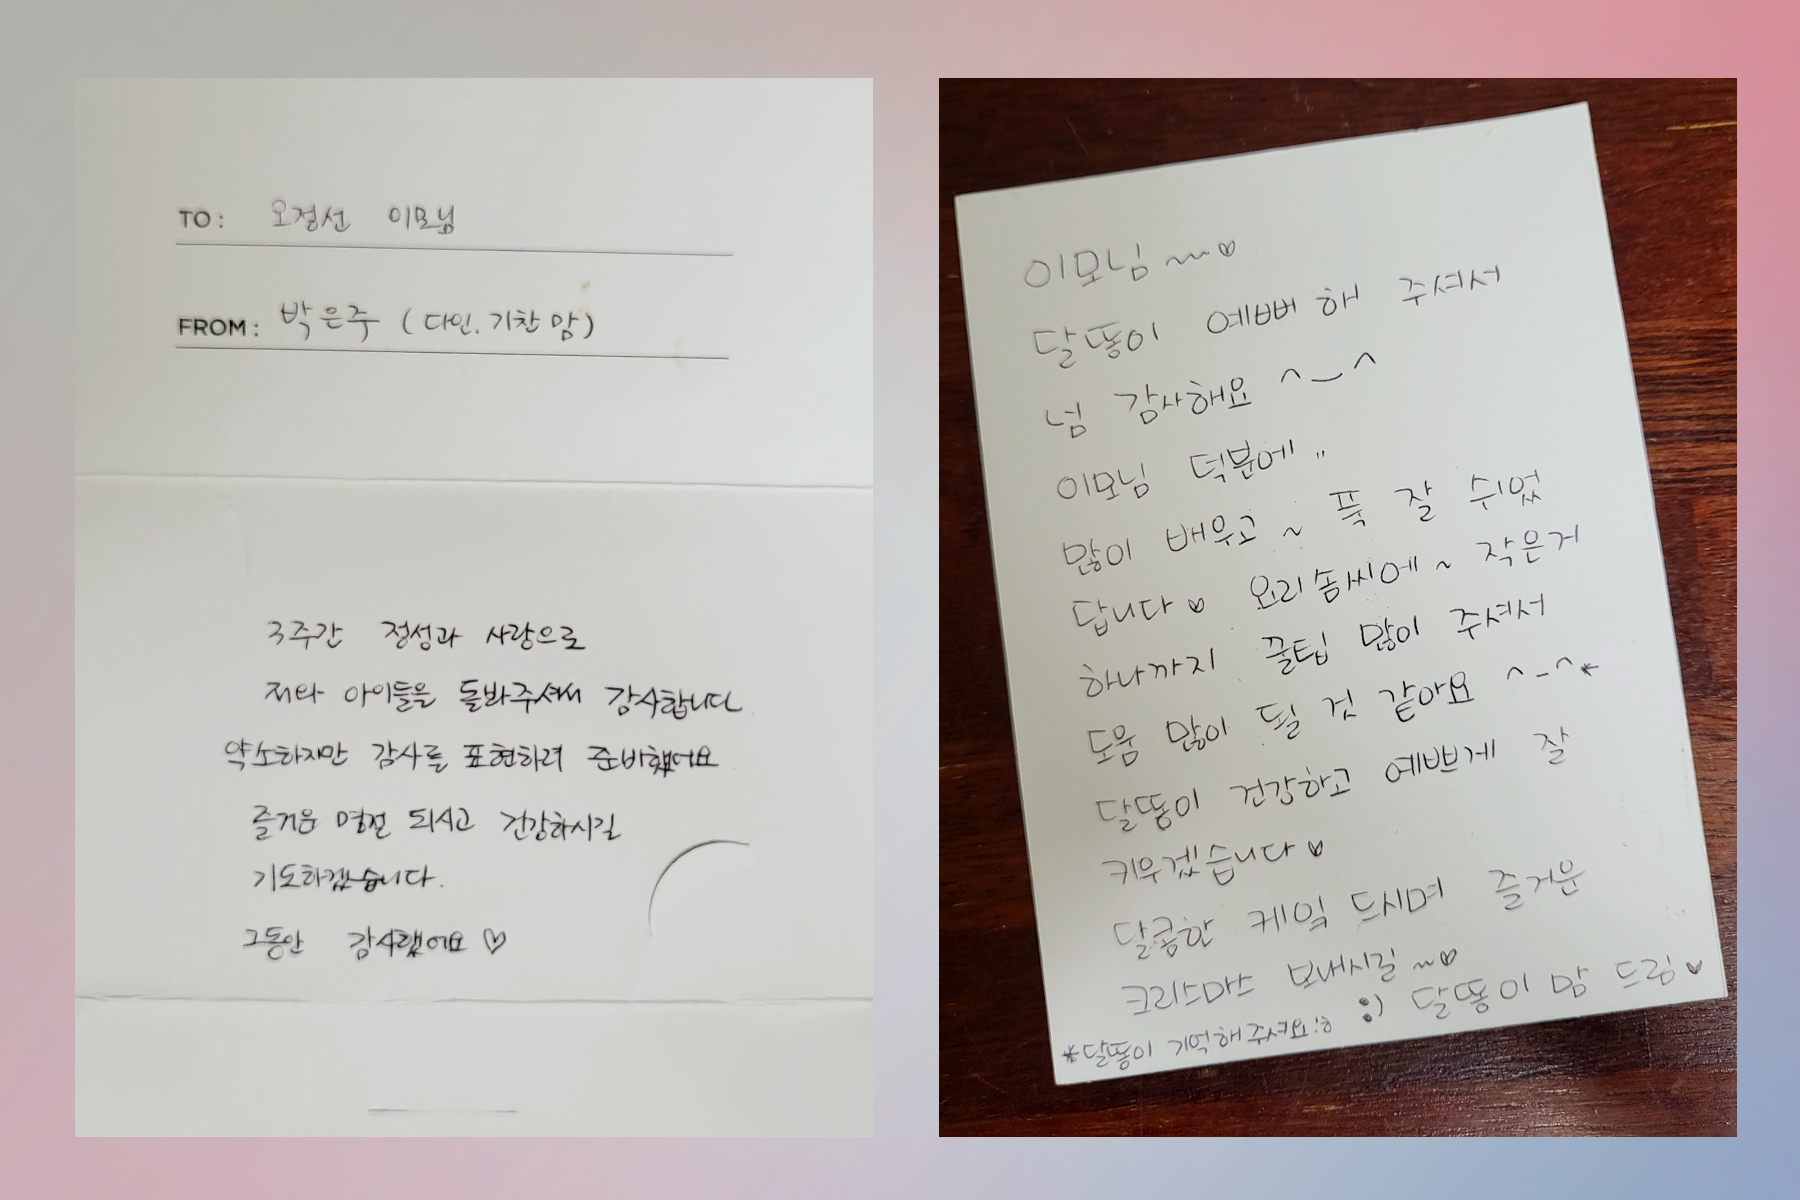 TO: 오정선 이모님
FROM: 박은주 (다인. 기찬 맘)
3주간 정성과 사랑으로
저와 아이들을 돌봐주셔서 감사합니다
약소하지만 감사를 표현하려 준비했어요
즐거운 명절 되시고 건강하시길
기도하겠습니다.
그동안 감사했어요 ♡
이모님 ~~♡
달똥이 예뻐 해 주셔서
넘 감사해요 ^‿^
이모님 덕분에 "
많이 배우고 ~ 푹 잘 쉬었
답니다 ♡ 요리솜씨에 ~ 작은거
하나까지 꿀팁 많이 주셔서
도움 많이 될 것 같아요 ^-^*
달똥이 건강하고 예쁘게 잘
키우겠습니다 ♡
달콤한 케잌 드시며 즐거운
크리스마스 보내시길 ~♡
:) 달똥이 맘 드림 ♡
*달똥이 기억해주셔요!ㅎ